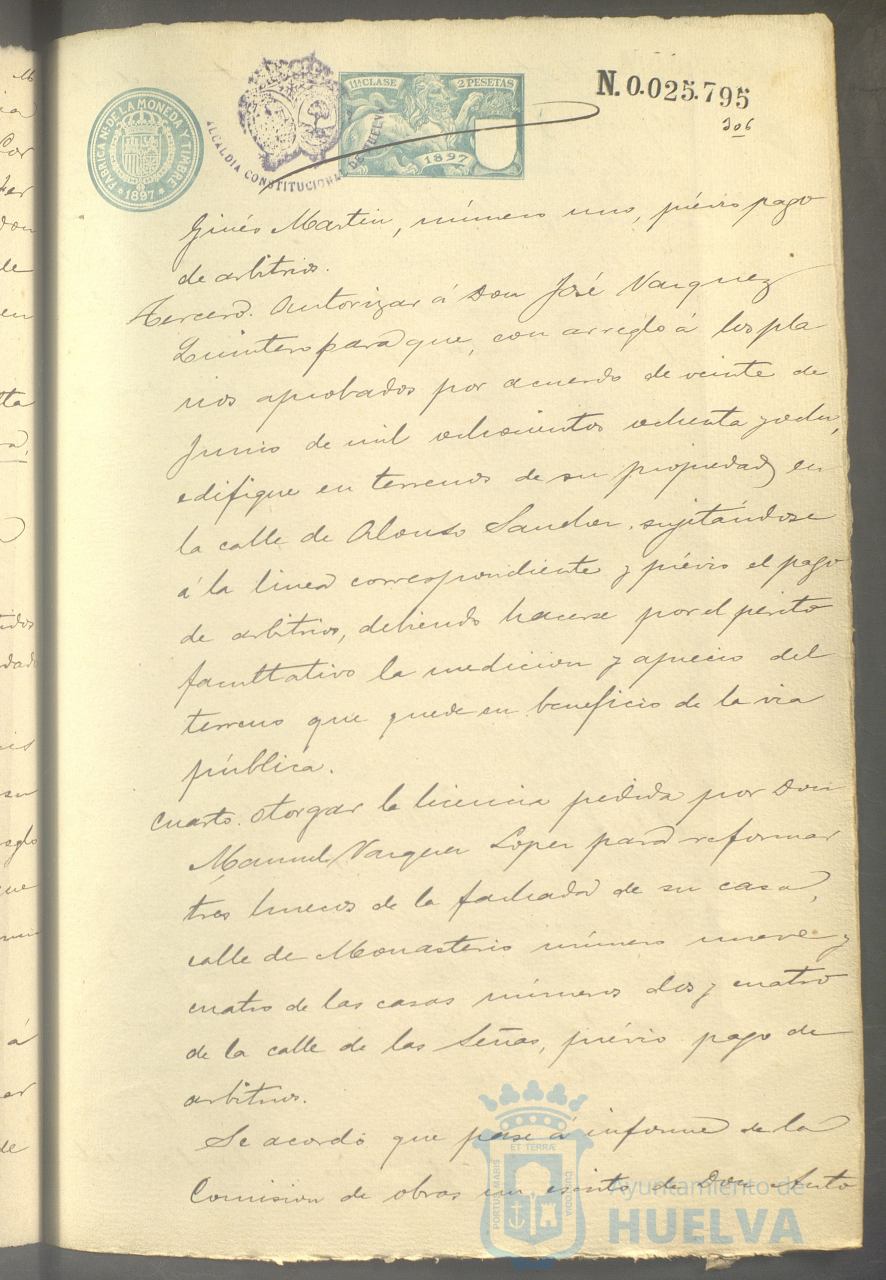 FABRICA Nl. DE LA MONEDA Y TIMBRE
1897
ALCALDIA CONSTITUCIONAL DE HUELVA
11ª CLASE
2 PESETAS
1897
N.0.025.795
306
Ginés Martin, número uno, prévio pago
de arbitrios.
Tercero. Autorizar á Don José Vazquez
Quintero para que, con arreglo á los pla
nos aprobados por acuerdo de veinte de
Junio de mil ochocientos ochenta y ocho,
edifique en terrenos de su propiedad en
la calle de Alonso Sanchez, sujetándose
á la linea correspondiente y prévio el pago
de arbitrios, debiendo hacerse por el perito
facultativo la medicion y aprecio del
terreno que quede en beneficio de la via
pública.
Cuarto. Otorgar la licencia pedida por Don
Manuel Vazquez Lopez para reformar
tres huecos de la fachada de su casa,
calle de Monasterio número nueve y
cuatro de las casas números dos y cuatro
de la calle de las Señas, prévio pago de
arbitrios.
Se acordó que pase á informe de la
Comision de obras un escrito de Don Anto
PORTUS MARIS
ET TERRÆ
CUSTODIA
Ayuntamiento de
HUELVA